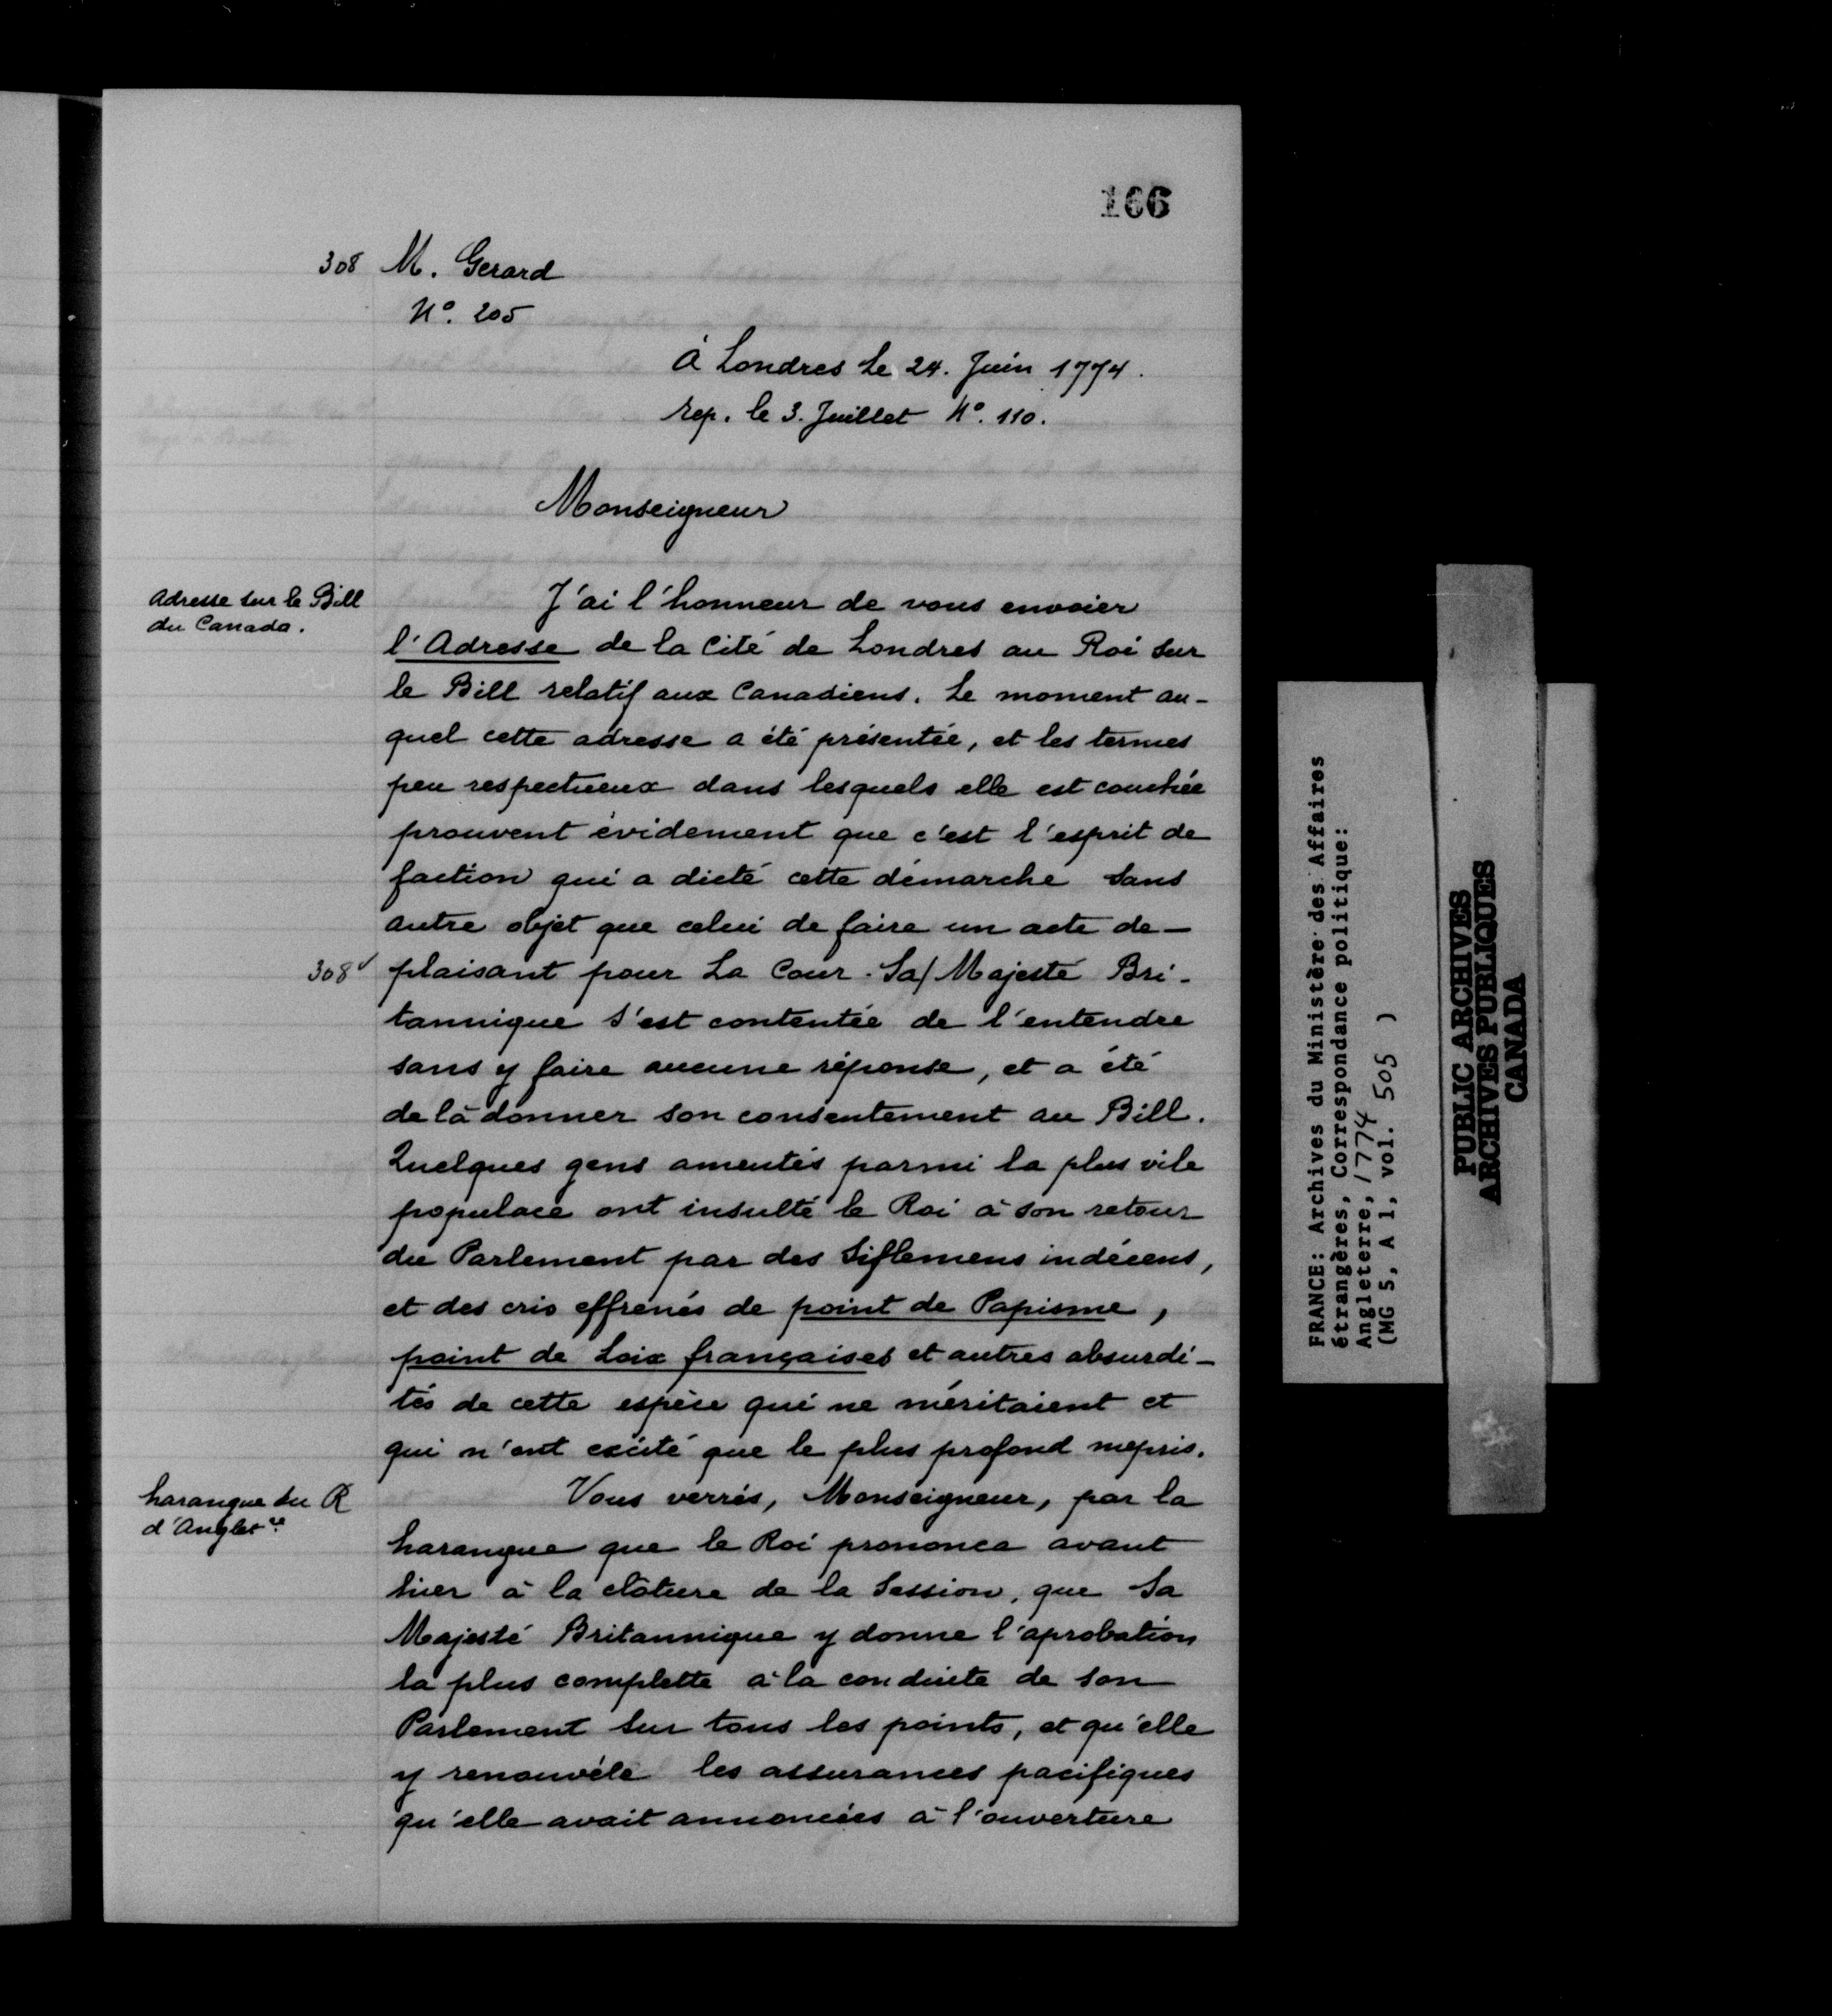 166
308 M. Gerard
N.º 205
À Londres le 24. Juin 1774.
rep. le 3. Juillet Nº. 110.
Monseigneur
Adresse sur le Bill
du Canada.
J'ai l'honneur de vous envoier
l'Adresse de la Cité de Londres au Roi sur
le Bill relatif aux Canadiens. Le moment au-
quel cette adresse a été présentée, et les termes
peu respectueux dans lesquels elle est couchée
prouvent évidement que c'est l'esprit de
faction qui a dicté cette démarche sans
autre objet que celui de faire un acte de-
308v plaisant pour La Cour. Sa/Majesté Bri-
tannique s'est contentée de l'entendre
sans y faire aucune réponse, et a été
de là donner son consentement au Bill.
Quelques gens ameutés parmi la plus vile
populace ont insulté le Roi à son retour
du Parlement par des Siflemens indécens,
et des cris effrénés de point de Papisme,
point de Loix françaises et autres absurdi-
tés de cette espèce qui ne méritaient et
qui n'ont excité que le plus profond mepris.
harangue du R
d'Anglet.re
Vous verrés, Monseigneur, par la
harangue que le Roi prononca avant
hier à la clôture de la Session, que Sa
Majesté Britannique y donne l'aprobation
la plus complette à la conduite de son
Parlement sur tous les points, et qu'elle
y renouvéle les assurances pacifiques
qu'elle avait annoncées à l'ouverture
FRANCE: Archives du Ministère des Affaires
étrangères, Correspondance politique:
Angleterre, 1774
(MG 5, A 1, vol. 505 )
PUBLIC ARCHIVES
ARCHIVES PUBLIQUES
CANADA